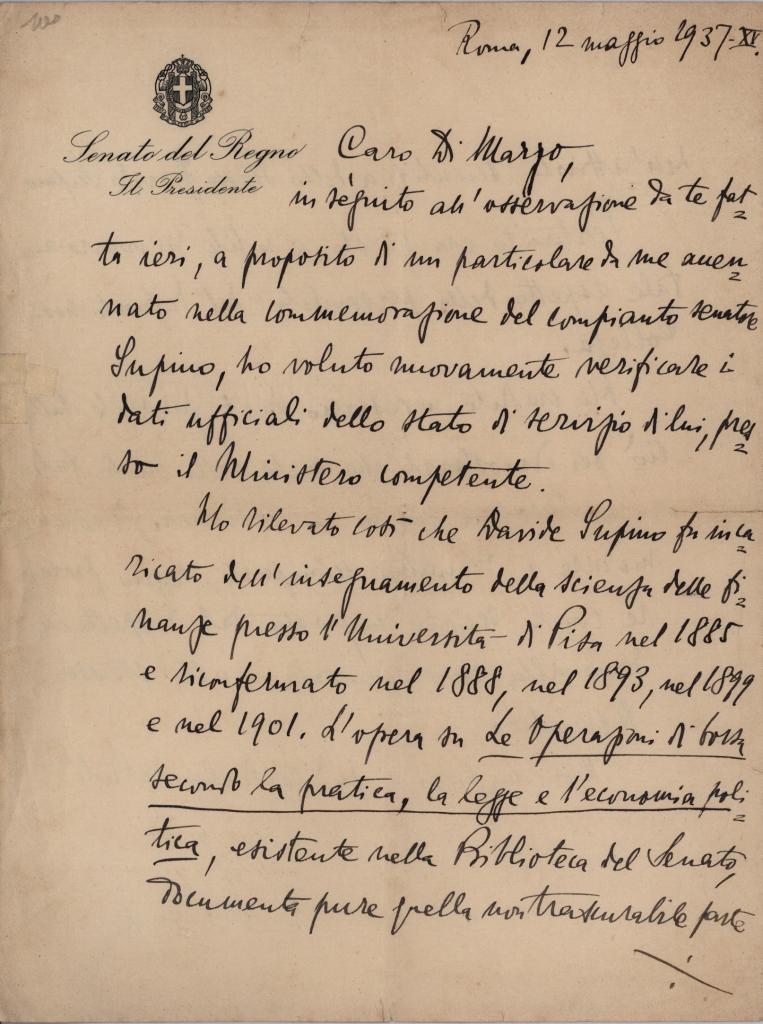 Roma, 12 maggio 1937-XV.
Senato del Regno
Il Presidente
Caro Di Marzo,
in séguito all'osservazione da te fat=
ta ieri, a proposito di un particolare da me accen=
nato nella commemorazione del compianto senatore
Supino, ho voluto nuovamente verificare i
dati ufficiali dello stato di servizio di lui, pres=
so il Ministero competente.
Ho rilevato così che Davide Supino fu inca=
ricato dell'insegnamento della scienza delle fi=
nanze presso l'Università di Pisa nel 1885
e riconfermato nel 1888, nel 1893, nel 1899
e nel 1901. L'opera su Le Operazioni di borsa
secondo la pratica, la legge e l'economia poli=
tica, esistente nella Biblioteca del Senato,
documenta pure quella non trascurabile parte